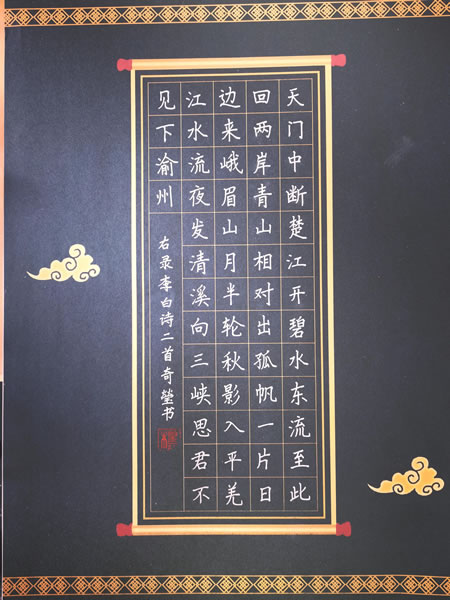 天门中断楚江开碧水东流至此
回两岸青山相对出孤帆一片日
边来峨眉山月半轮秋影入平羌
江水流夜发清溪向三峡思君不
见下渝州
右录李白诗二首奇书